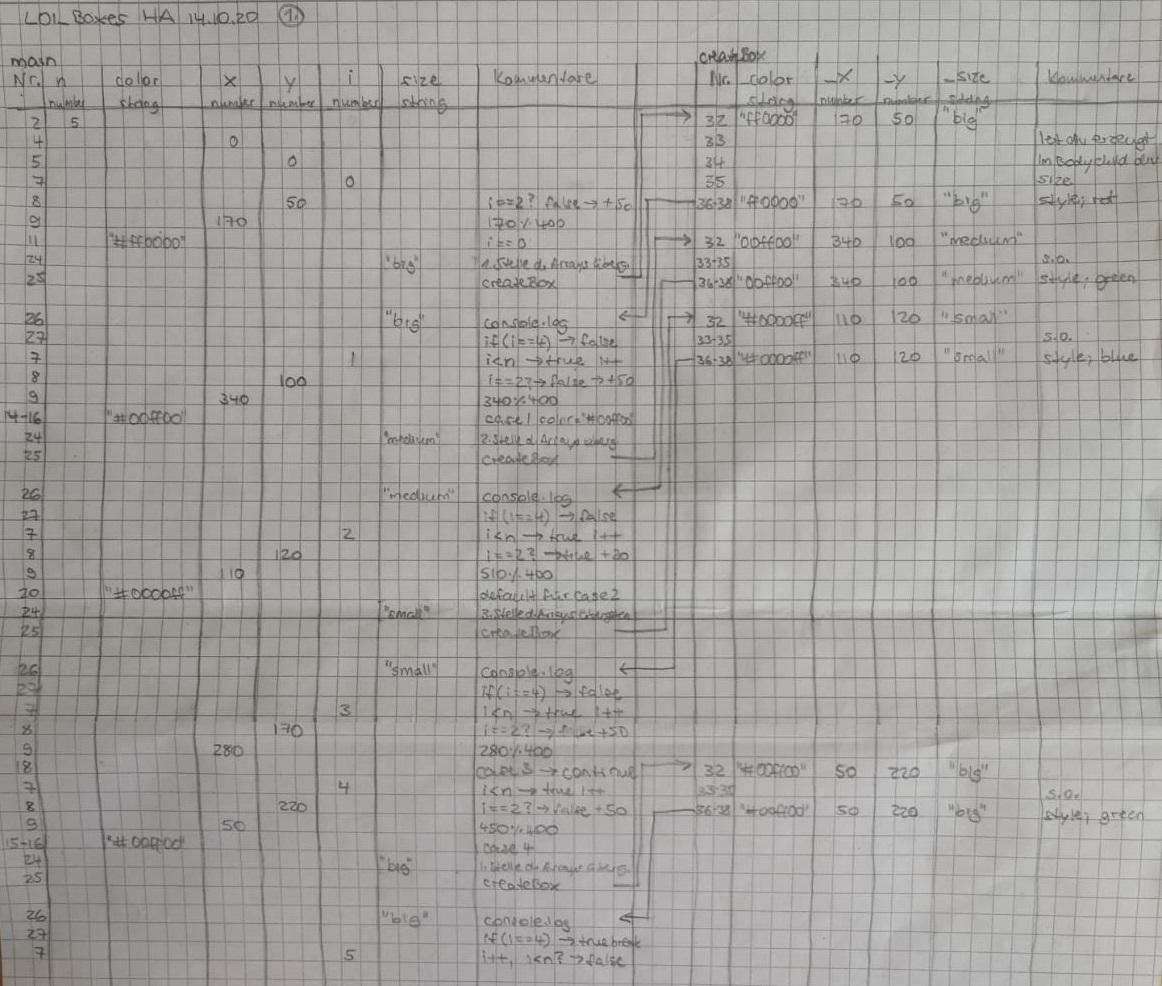 LOIL Boxes HA 14.10.20 1.
main
Nr. n color x y i size Kommentare
number string number number number string
2 5
4 0
5 0
7 0
8 50 i==2? false → +50
9 170 170%400
11 "#ff0000" i==0
24 "big" 1. Stelle d. Arrays überg.
25 createBox
26 "big" console.log
27 if(i==4) → false
7 1 i<n → true i++
8 100 i==2? → false → +50
9 340 340%400
14-16 "#00ff00" case 1 color="#00ff00
24 "medium" 2. Stelle d Arrays überg
25 createBox
26 "medium" console.log
27 if(i==4) → false
7 2 i<n → true i++
8 120 i==2? → true +20
9 110 510%400
20 "#0000ff" default für case 2
24 "small" 3. Stelle d. Arrays
25 createBox
26 "small" console.log
27 if(i==4) → false
7 3 i<n → true i++
8 170 i==2? → false +50
9 280 280%400
18 case 3 → continue
7 4 i<n → true i++
8 220 i==2? → false +50
9 50 450%400
15-16 "#00ff00" case 4
24 "big" 1. Stelle d. Arrays überg.
25 createBox
26 "big" console.log
27 if(i==4) → true break
7 5 i++, i<n? → false
createBox
Nr. color _x _y _size Kommentare
string number number string
32 "ff0000" 170 50 "big"
33 let div erzeugt
34 im Body child div
35 size
36-38 "#0000" 170 50 "big" style; rot
32 "00ff00" 340 100 "medium"
33-35 s.o.
36-38 "00ff00" 340 100 "medium" style; green
32 "#0000ff" 110 120 "small"
33-35 s.o.
36-38 "#0000ff" 110 120 "small" style; blue
32 "#00ff00" 50 220 "big"
33-35 s.o.
36-38 "#00ff00" 50 220 "big" style; green